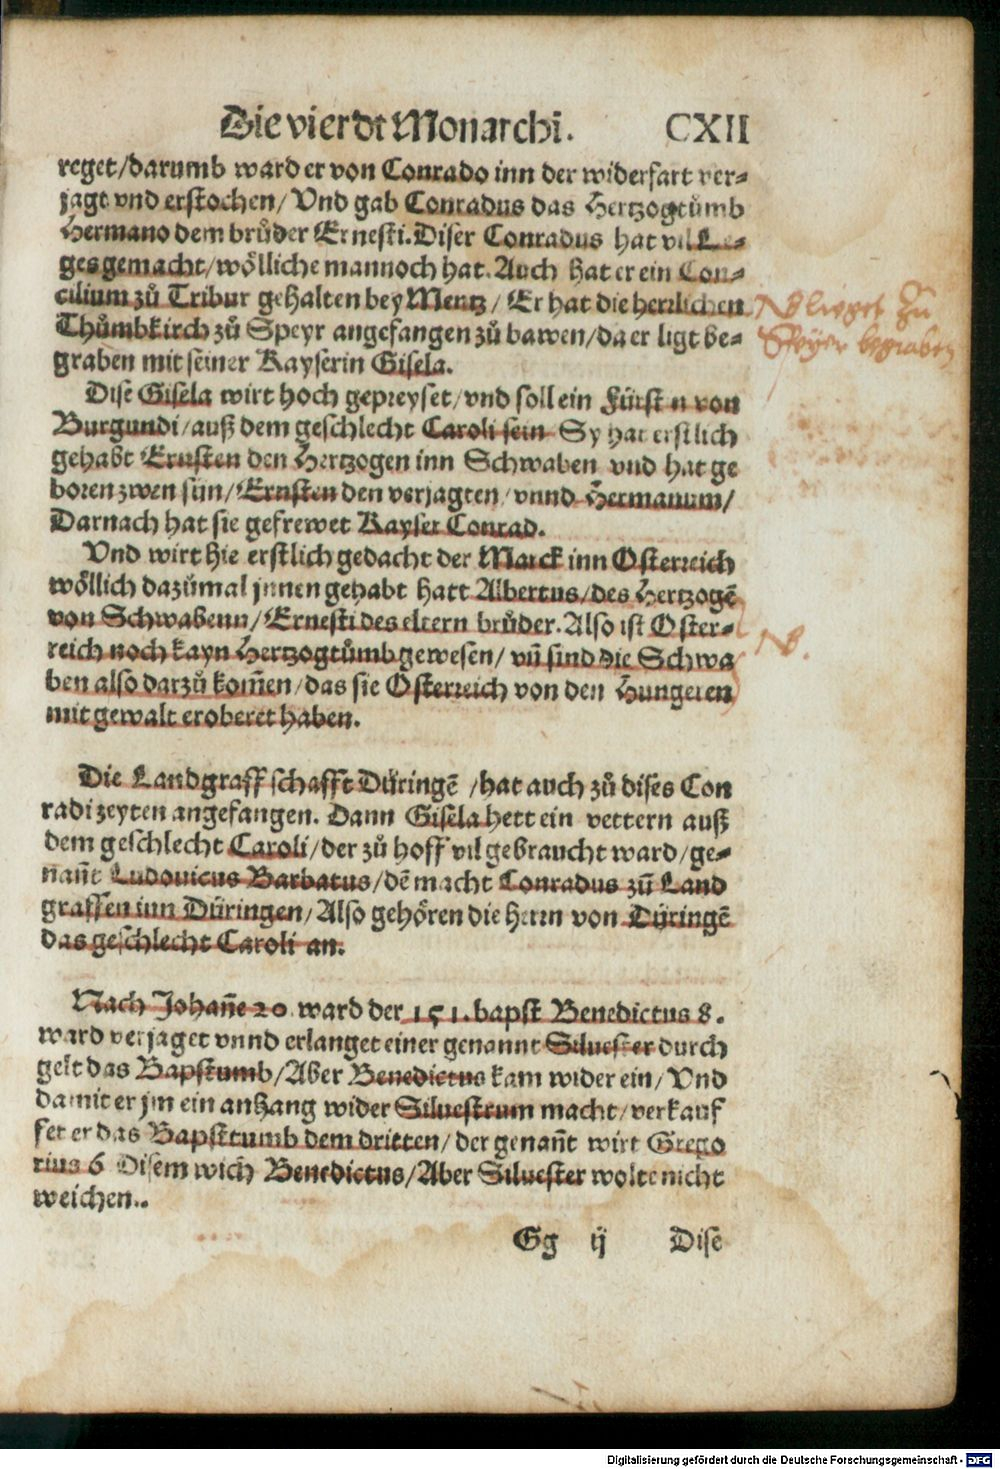 Die vierdt Monarchi. CXII
reget/darumb ward er von Conrado inn der widerfart ver-
jagt vnd erstochen/ Vnd gab Conradus das Hertzogtůmb
Hermano dem brůder Ernesti. Diser Conradus hat vil Le-
ges gemacht/wölliche man noch hat. Auch hat er ein Con-
cilium zů Tribur gehalten bey Mentz/ Er hat die herrlichen
Thůmbkirch zů Speyr angefangen zů bawen/da er ligt be-
graben mit seiner Kayserin Gisela.
NB lieget zu
Speyer begraben
Dise Gisela wirt hoch gepreyset/vnd soll ein Fürstin von
Burgundi/auß dem geschlecht Caroli sein Sy hat erstlich
gehabt Ernsten den Hertzogen inn Schwaben vnd hat ge
boren zwen sün/Ernsten den verjagten/vnnd Hermanum/
Darnach hat sie gefrewet Kayser Conrad.
Vnd wirt hie erstlich gedacht der Marck inn Osterreich
wöllich dazůmal jnnen gehabt hatt Albertus/des Hertzogẽ
von Schwabenn/Ernesti des eltern brůder. Also ist Oster-
reich noch kayn Hertzogtůmb gewesen/ vñ sind die Schwa
NB.
ben also darzů kom̃en/das sie Osterreich von den Hungeren
mit gewalt eroberet haben.
Die Landgraffschafft Düringẽ /hat auch zů dises Con
radi zeyten angefangen. Dann Gisela hett ein vettern auß
dem geschlecht Caroli/der zů hoff vil gebraucht ward/ge-
nañt Ludouicus Barbatus/dẽ macht Conradus zũ Land
graffen inn Düringen/Also gehören die herrn von Düringẽ
das geschlecht Caroli an.
Nach Johañe 20 ward der 151. bapst Benedictus 8.
ward verjaget vnnd erlanget einer genannt Siluester durch
gelt das Bapstumb/Aber Benedictus kam wider ein/Vnd
damit er jm ein anhang wider Siluestrum macht/verkauf
fet er das Bapsttumb dem dritten/der genañt wirt Grego
rius 6 Disem wich Benedictus/Aber Siluester wolte nicht
weichen..
Gg ij Dise
Digitalisierung gefördert durch die Deutsche Forschungsgemeinschaft - DFG